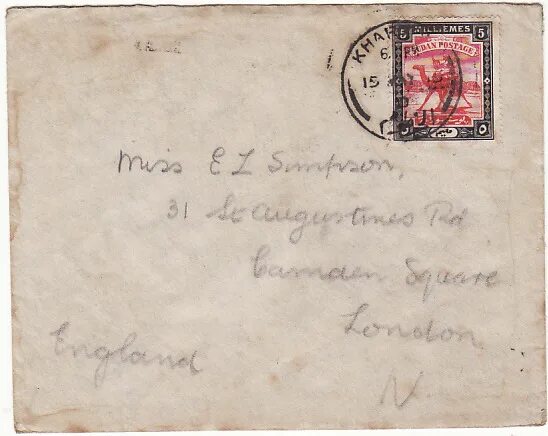 5 MILLIEMES 5
SUDAN POSTAGE
KHAR
15
Miss E L Simpson,
31 St Augustines Rd
Camden Square
London
England
N